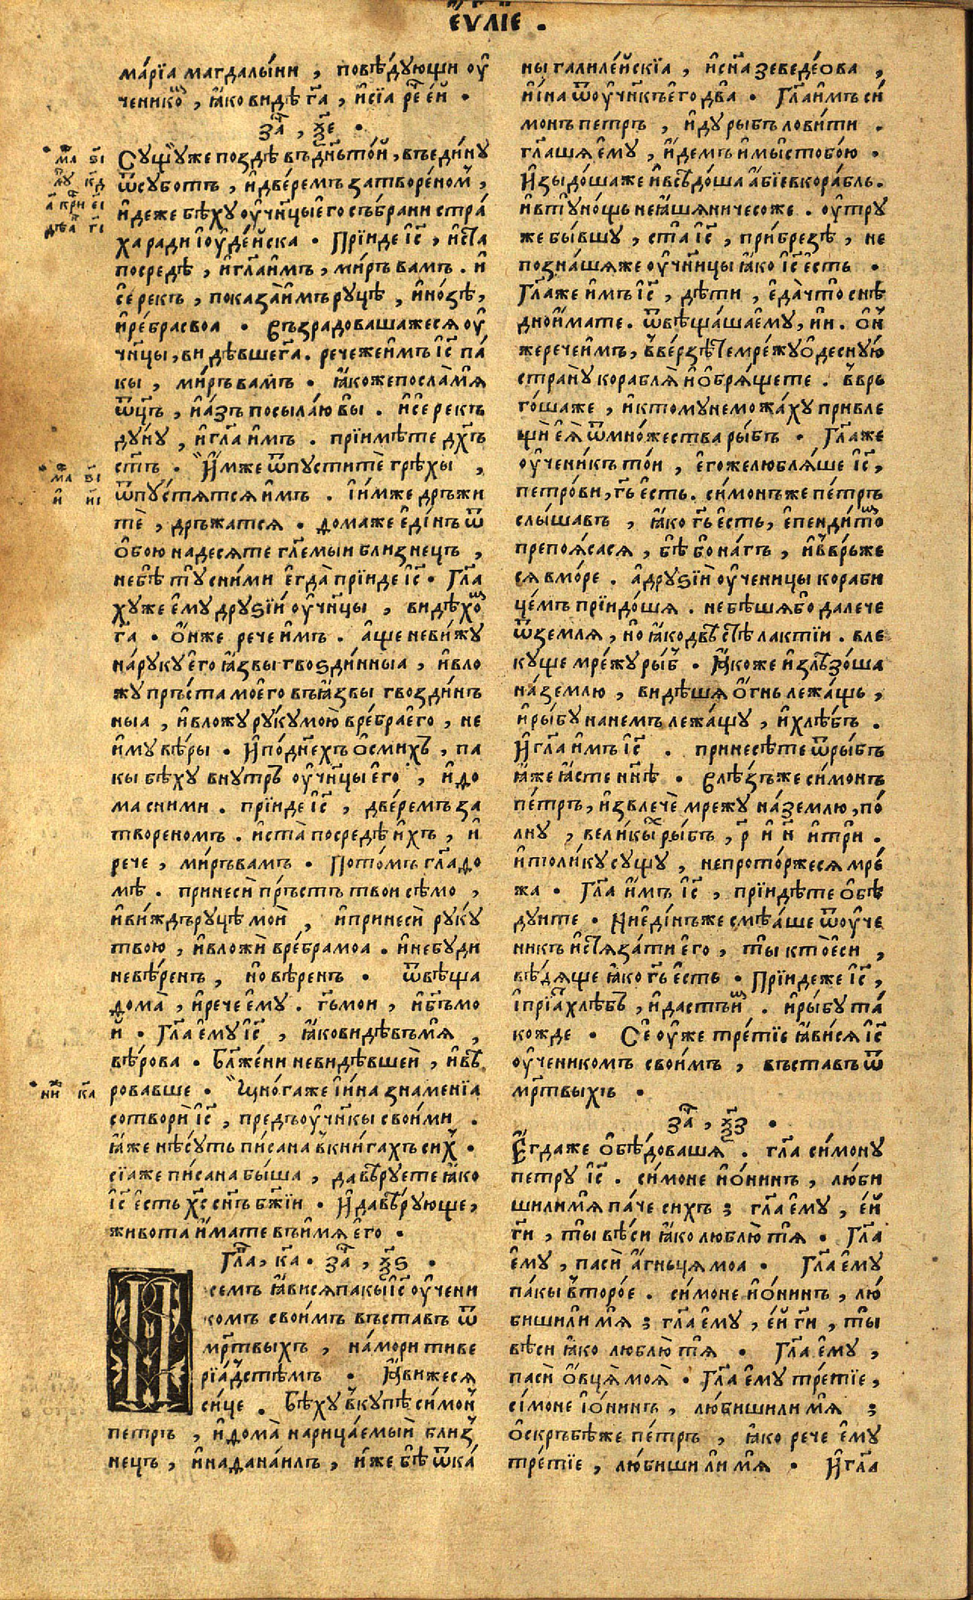 єѵⷢ҇лїє .
ма́рїа магдалы́ни , повѣ́дующи оу҆
ченико́ⷨ , ꙗ҆́ко видѣ гⷭ҇а , и҆ сїа рⷱ҇е є҆́й .
заⷱ҇ , ѯ҃е .
Су́щꙋ уже поздѣ въ дн҃ь то́й , въ еди́ну
ѿ суботъ , и҆ две́ремъ затворе́номⸯ ,
и҆деже бѣ́ху оу҆чн҃цы є҆го съ́брани стра́
ха ради і҆оуде́йска . Прїи́де і҆с҃ , и҆ ста
посредѣ , и҆ гл҃а и҆мъ , ми́ръ вамъ . и҆
се́ рекъ , показа̀ и҆мъ ру́цѣ , и҆ но́зѣ ,
и҆ ре́бра своа . Въ́зрадовашажеся оу҆
чн҃цы , ви́дѣвше гⷭ҇а . рече же и҆мъ і҆с҃ па́
кы , ми́ръ вамъ . ꙗ҆́коже посла̀ мѧ
ѿц҃ъ , и҆ а҆́зъ посыла́ю вы . и҆ се́ рекъ
ду́ну , и҆ гл҃а и҆мъ . прїимѣ́те дх҃ъ
ст҃ъ . И҆́мже ѿпуститѐ грѣхы ,
ѿпу́стѧтсѧ и҆мъ . и҆ и҆́мже дръжи
тѐ , дръжа́тсѧ . Ѳома же є҆ди́нъ ѿ
о҆бою на́десѧте гл҃емыи близнецъ ,
не бѣ̀ ту с ни́ми є҆гда̀ прїи́де і҆с҃ . Гл҃а
ху же є҆му дру́ѕїи оу҆чн҃цы , ви́дѣхоⷨ
гⷭ҇а . О҆́нже рече и҆мъ . а҆́ще не ви́жу
на руку є҆го ꙗ҆́звы гвозди́нныа , и҆ вло
жу пръ́ста мое́го въ ꙗ҆́звы гвозди́нъ
ныа , и҆ вложу́ руку мою̀ в ре́бра є҆го , не
и҆му вѣ́ры . И҆ по дн҃ехъ о҆смихъ , па
кы бѣху внутръ оу҆чн҃цы є҆го , и҆ ѳо
ма с ни́ми . прїи́де і҆с҃ , две́ремъ за
творе́номъ . и҆ ста̀ посредѣ̀ и҆́хъ , и҆
рече , ми́ръ вамъ . Пото́мъ гл҃а ѳо
мѣ̀ . принесѝ пръ́стъ твои сѣ́мо ,
и҆ ви́ждь ру́цѣ моѝ , и҆ принесѝ руку
твою , и҆ вложѝ в ре́бра моа . и҆ не буди
невѣ́ренъ , но вѣ́ренъ . ѿвѣща
ѳома̀ , и҆ рече є҆му . гⷭ҇ь мои , и҆ бг҃ъ мо
й . Гл҃а є҆му і҆с҃ , ꙗ҆́ко видѣвъ мѧ ,
вѣ́рова . Бл҃же́ни невидѣвшеѝ , и҆ вѣ́
ровавше . Мно́га же и҆ и҆на знаменїа
сотворѝ і҆с҃ , предъ оу҆чн҃кы своими .
ꙗ҆́же нѣ́суть пи́сана в кни́гахъ си́х .
сїа же пи́сана бы́ша , да вѣ́руете ꙗ҆́ко
і҆с҃ є҆́сть хс҃ сн҃ъ бж҃їи . И҆ да вѣ́рующе ,
живота и҆́мате въ и҆́мѧ є҆го .
Глⷡ҇а , к҃а . заⷱ҇ , ѯ҃ѕ .
Посемъ ꙗ҆ви́сѧ пакы і҆с҃ оу҆чени
комъ свои́мъ въста́въ ѿ
мр҃твыхъ , на мо́ри тиве
рїадстѣмъ . Ꙗ҆ви́жесѧ
си́це . Бѣ́ху вкупѣ си́мон
петръ , и҆ ѳома̀ нарица́емыи близ
нецъ , и҆ наѳана́илъ , и҆́же бѣ̀ ѿ ка́
ны галиле́йскїа , и҆ сн҃а зеведе́ова ,
и҆ и҆на ѿ оу҆чн҃къ є҆го два̀ . Гл҃а и҆мъ си́
монъ петръ , и҆ду ры́бъ лови́ти .
гл҃аша є҆му , и҆́демъ и҆ мы с тобо́ю .
И҆зыдо́ша же и҆ всѣдо́ша а҆́бїе в кора́бль .
и҆ в ту но́щь не ꙗ҆́шѧ ничесо́же . оу҆тру
же бы́вшу , ста̀ і҆с҃ , при́ брезѣ , не
позна́шѧ же оу҆чн҃цы ꙗ҆́ко і҆с҃ є҆́сть .
Гл҃а же и҆мъ і҆с҃ , дѣти , є҆да̀ что̀ снѣ
дно и҆́мате . ѿвѣща́ша є҆му , ни . Ѻ҆н
же рече и҆мъ , вве́рзѣте мре́жу о҆ десную
страну̀ кораблѧ̀ и҆ о҆брѧ́щете . вве́рь
го́шаже , и҆ ктому не можа́ху привле
щѝ є҆ѧ̀ ѿ мно́жества ры́бъ . Гл҃а же
оу҆чени́къ то́и , є҆го́же люблѧ́ше і҆с҃ ,
петро́ви , гⷭ҇ь є҆́сть . си́монъ же пе́тръ
слы́шавъ , ꙗ҆́ко гⷭ҇ь є҆́сть , є҆пенди́тоⷨ
препоѧ́сасѧ , бѣ̀ бо на́гъ , и҆ вве́рьже
сѧ в мо́ре . а друѕїѝ оу҆ченицы кораби
це́мъ прїидо́шѧ . не бѣ́шѧ бо далече
ѿ землѧ , но ꙗ҆́ко двѣ́стѣ лактїи . вле
куще мре́жу ры́б . Ꙗ҆́коже и҆злѣзо́ша
на́ землю , ви́дѣшѧ о҆́гнь лежа́щь ,
и҆ ры́бу на не́мъ лежа́щу , и҆ хлѣ́бъ .
И҆ гл҃а и҆мъ і҆с҃ . принесѣ́те ѿ ры́бъ
ꙗ҆́же ꙗ҆́сте нн҃ѣ . Влѣ́зъ же си́монъ
пе́тръ , и҆звлечѐ мре́жу на́ землю , по́
лну , вели́кыⷯ ры́бъ , р҃ и҆ н҃ и҆ трѝ .
и҆ толи́ку су́щу , не прото́ржесѧ мре́
жа . Гл҃а и҆́мъ і҆с҃ , прїидѣ́те о҆бѣ́
дуите . Ни є҆ди́нъ же смѣ́аше ѿ оу҆че
никъ и҆стѧза́ти є҆го , ты̀ кто̀ є҆си ,
вѣ́дѧще ꙗ҆́ко гⷭ҇ь є҆́сть . Прїи́деже і҆с҃ ,
и҆ прїа̀т хлѣ́бъ , и҆ дастъ и҆ⷨ . и҆ рыбу та́
кожде . Се́ оу҆́же тре́тїе ꙗ҆ви́сѧ і҆с҃
оу҆ченикомъ своимъ , въста́въ ѿ
мр҃твыхъ .
заⷱ҇ , ѯ҃з .
Є҆гда же о҆бѣ́довашѧ . гл҃а си́мону
петру і҆с҃ . си́моне і҆о́нинъ , лю́би
ши ли мѧ̀ па́че си́хъ ; гл҃а є҆му , є҆́й
гⷭ҇и , ты̀ вѣ́си ꙗ҆́ко люблю́ тѧ . Гл҃а
є҆му , пасѝ а҆́гньцѧ моа . Гл҃а є҆му
па́кы второ́е . си́моне і҆о́нинъ , лю́
биши ли мѧ̀ ; гл҃а є҆му , є҆́й гⷭ҇и , ты̀
вѣ́си ꙗ҆́ко люблю́ тѧ . Гл҃а є҆му ,
пасѝ о҆вцѧ̀ моѧ̀ . Гл҃а є҆му тре́тїе ,
си́моне і҆о́нинъ , лю́биши ли мѧ̀ ;
о҆скръбѣ́же пе́тръ , ꙗ҆́ко рече є҆му
тре́тїе , лю́биши ли мѧ̀ . И҆ гл҃а